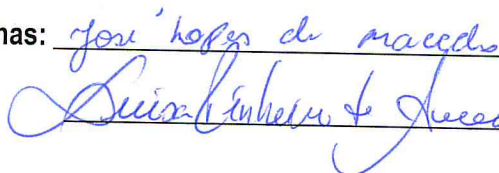 nas: José Lopes de Macedo
Luisa Pinheiro de